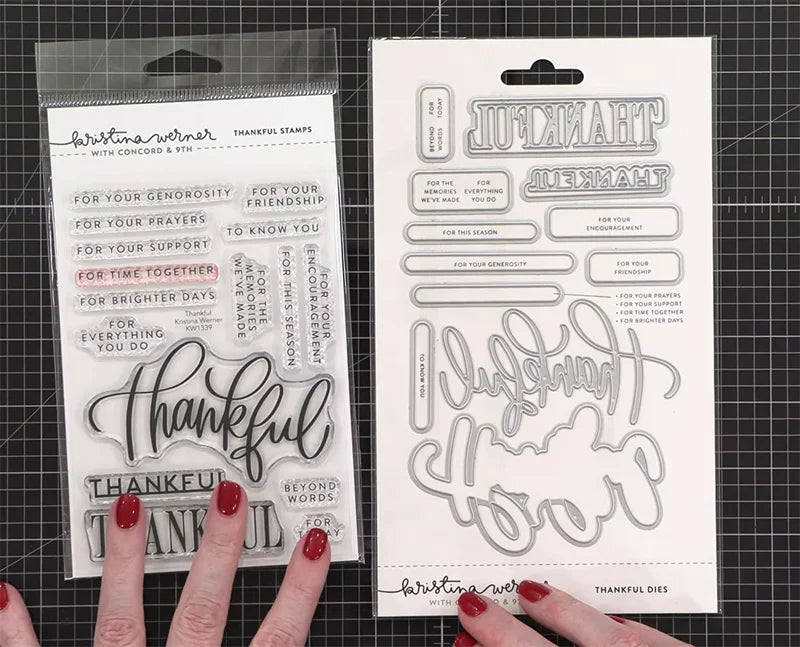 kristina werner
WITH CONCORD & 9TH
THANKFUL STAMPS
FOR YOUR GENEROSITY
FOR YOUR
FRIENDSHIP
FOR YOUR PRAYERS
TO KNOW YOU
FOR YOUR SUPPORT
FOR TIME TOGETHER
FOR BRIGHTER DAYS
FOR THE
MEMORIES
WE'VE MADE
FOR THIS SEASON
FOR YOUR
ENCOURAGEMENT
Thankful
Kristina Werner
KW1339
FOR
EVERYTHING
YOU DO
thankful
THANKFUL
BEYOND
WORDS
THANKFUL
FOR
TODAY
BEYOND
WORDS
FOR
TODAY
THANKFUL
THANKFUL
FOR THE
MEMORIES
WE'VE MADE
FOR
EVERYTHING
YOU DO
FOR THIS SEASON
FOR YOUR
ENCOURAGEMENT
FOR YOUR GENEROSITY
FOR YOUR
FRIENDSHIP
• FOR YOUR PRAYERS
• FOR YOUR SUPPORT
• FOR TIME TOGETHER
• FOR BRIGHTER DAYS
TO KNOW YOU
thankful
kristina werner
WITH CONCORD & 9TH
THANKFUL DIES